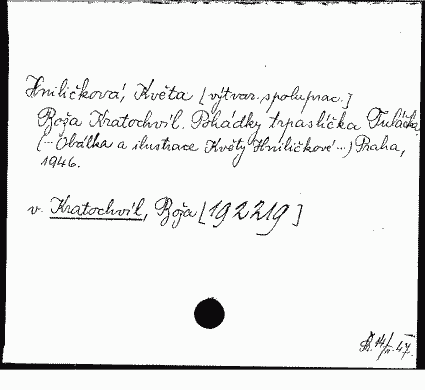 Hniličková, Květa [výtvar. spoluprac.]
Boža Kratochvíl. Pohádky trpaslíčka Tuláčka.
(... Obálka a ilustrace Květy Hniličkové ...) Praha,
1946.
v. Kratochvíl, Boža [192219]
14/II. 47.